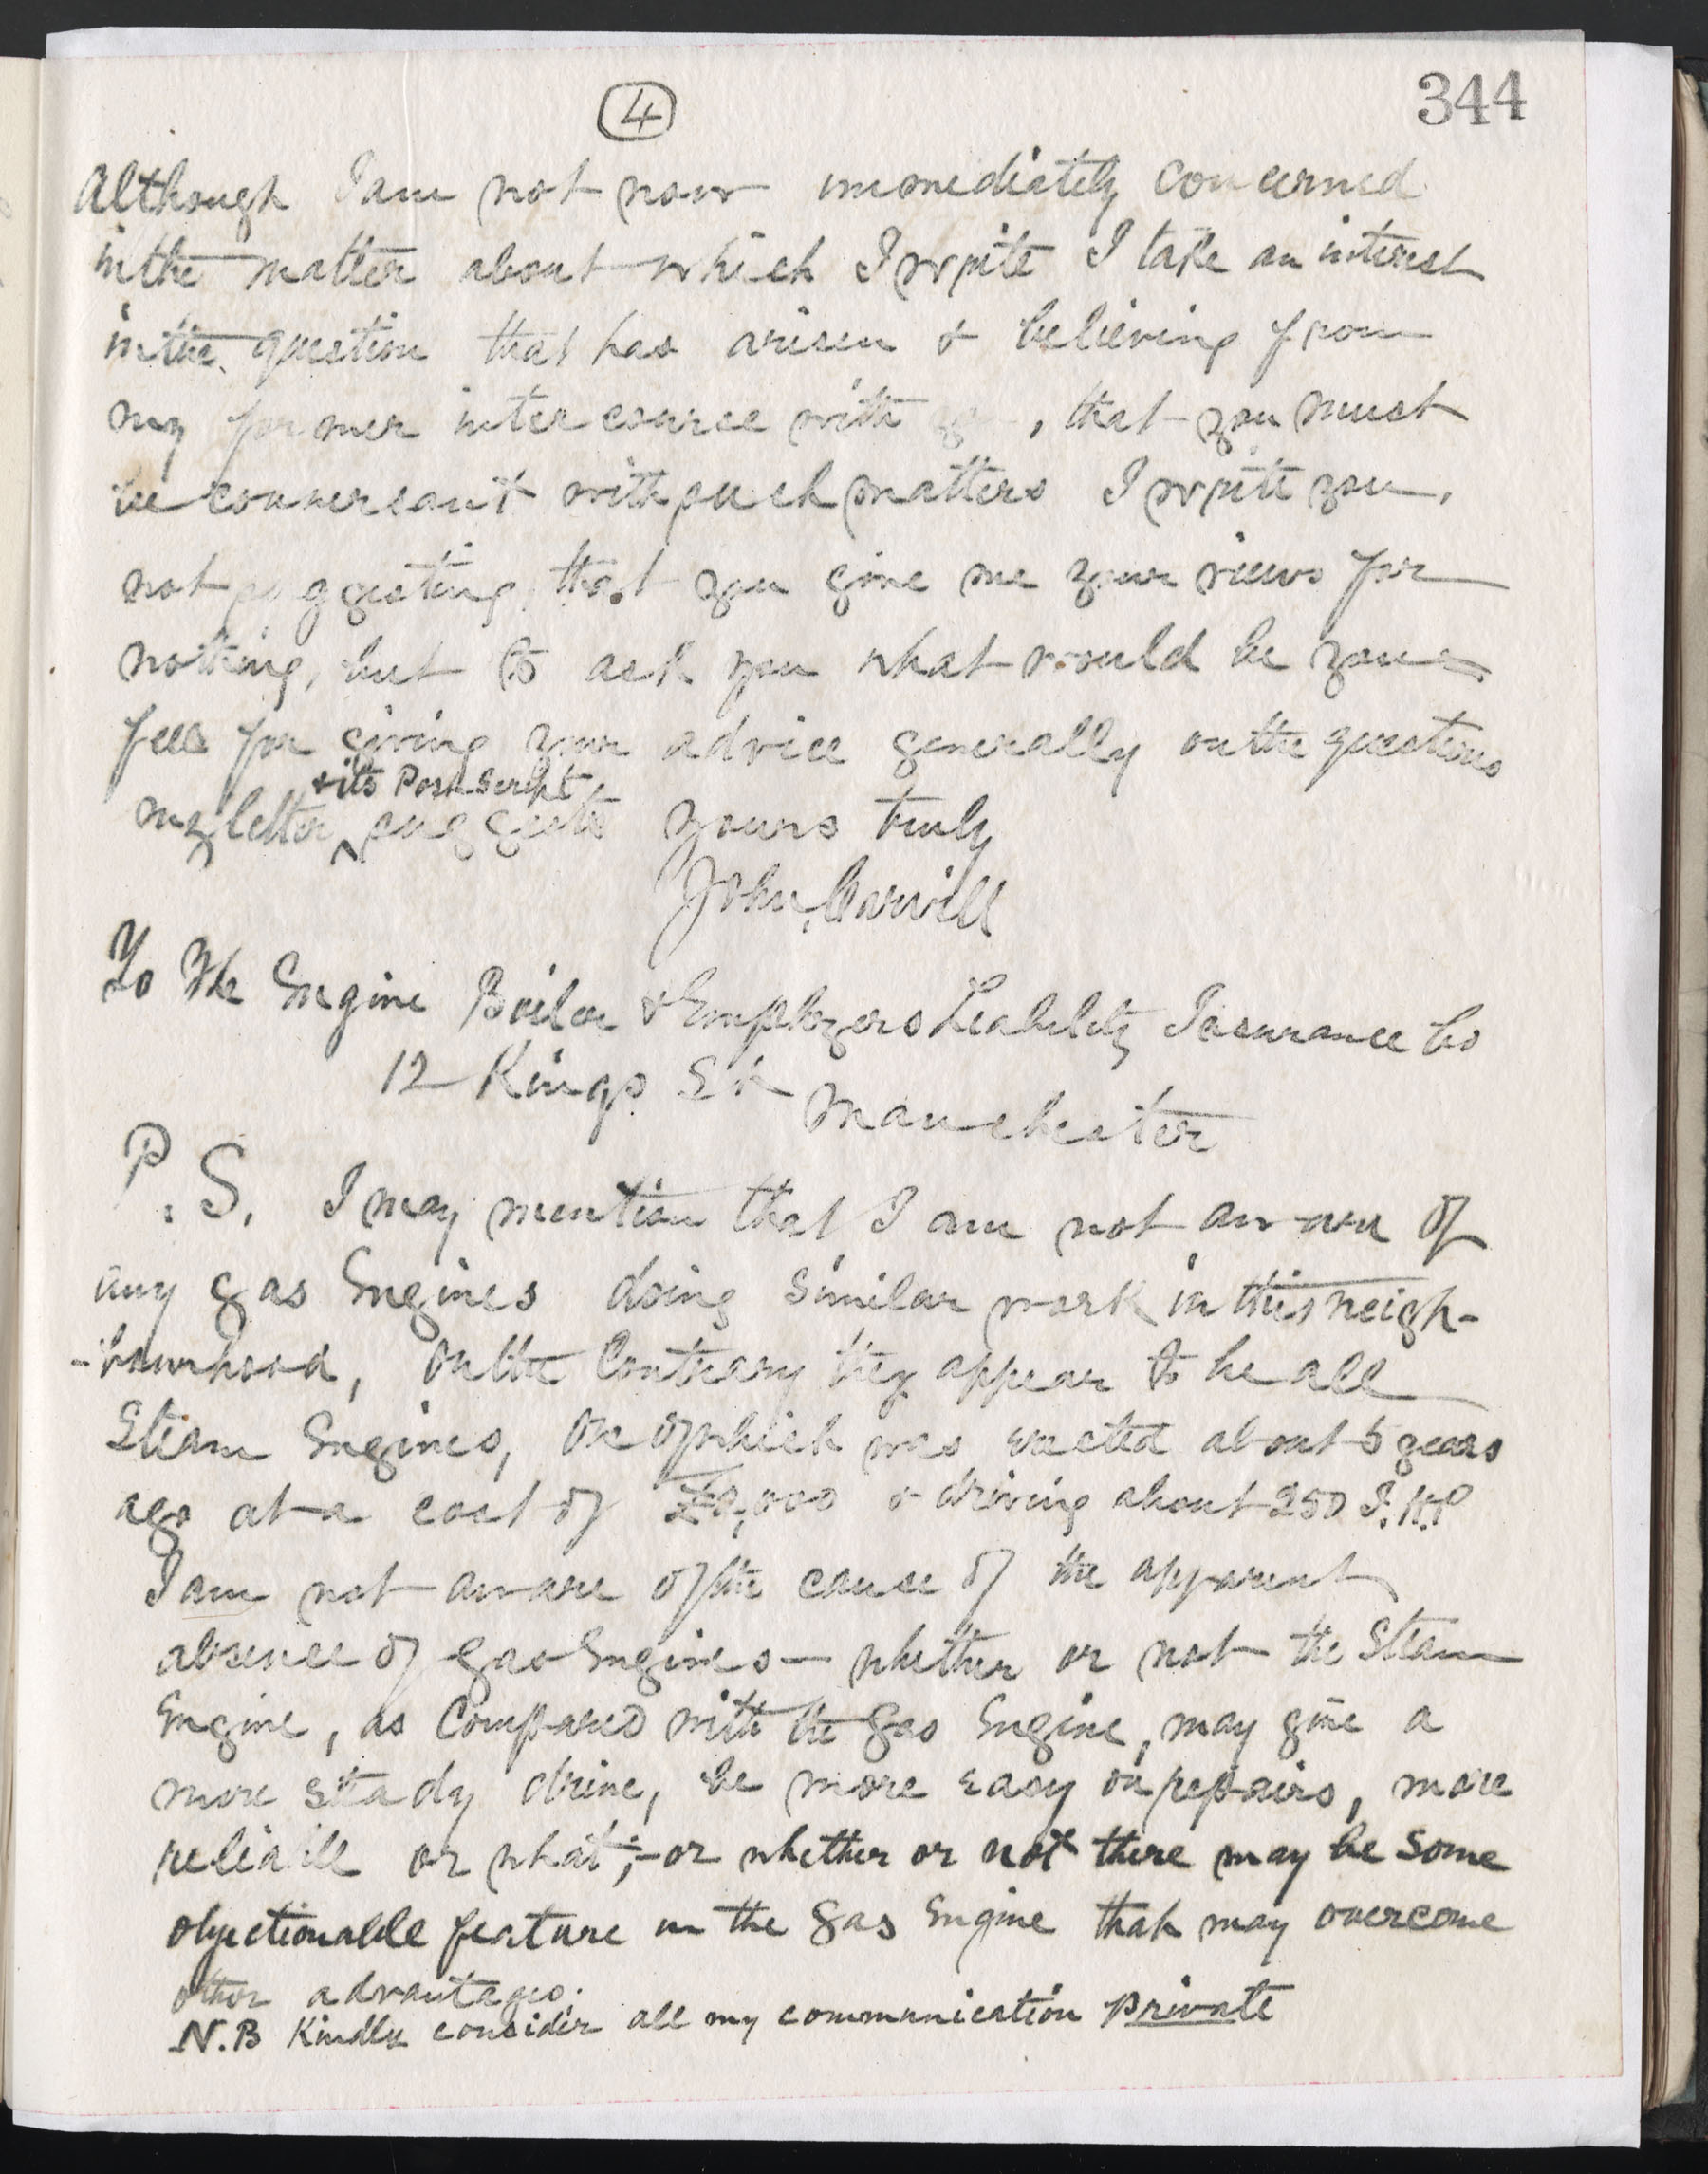 4
344
Although I am not now immediately concerned
in the matter about which I write I take an interest
in the question that has arisen & believing from
my former intercourse with , that you must
be conversant with such matters I write you,
not suggesting that you give me your views for
nothing, but to ask you what would be your
fees for giving your advice generally on the questions
& its Post Script
my letter ^ suggests Yours truly
John Carvill
To The Engine Boiler & Employers Liability Insurance Co
12 Kings St Manchester
P.S. I may mention that I am not aware of
any gas Engines doing similar work in this neigh-
-bourhood, on the Contrary they appear to be all
Steam Engines, one of which was erected about 5 years
ago at a cost of & driving about 250 I.H.P
I am not aware of the cause of the apparent
absence of gas Engines — whether or not the Steam
Engine, as Compared with the gas Engine, may give a
more steady drive, be more easy on repairs, more
reliable or what; - or whether or not there may be some
objectionable feature in the gas Engine that may overcome
other advantages.
N.B Kindly consider all my communication private